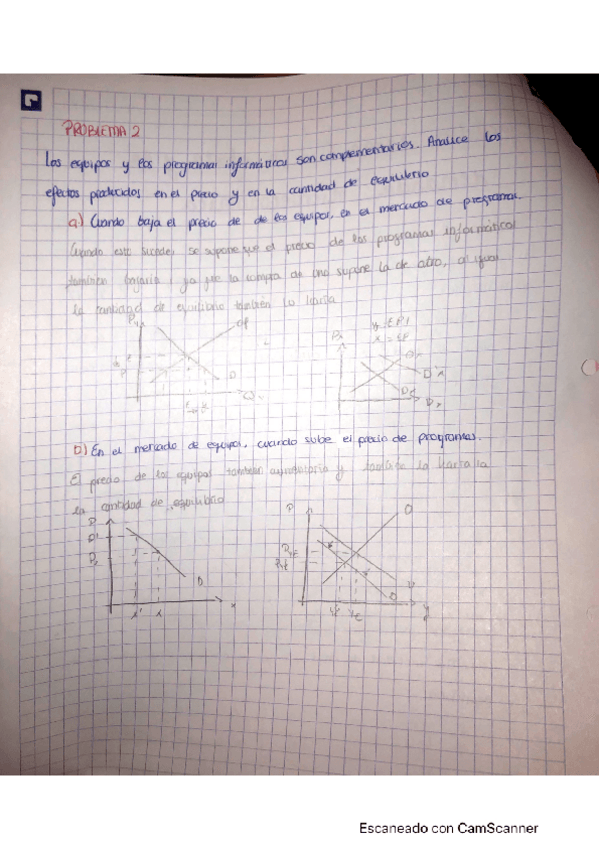 PROBLEMA 2
Los equipos y los programas informáticos son complementarios. Analice los
efectos producidos en el precio y en la cantidad de equilibrio
a) Cuando baja el precio de de los equipos, en el mercado de programas.
Cuando esto sucede, se supone que el precio de los programas informáticos
también bajaría ya que la compra de uno supone la de otro, al igual
la cantidad de equilibrio también lo haría
D
D
b) En el mercado de equipos, cuando sube el precio de programas.
El precio de los equipos también aumentaría y también lo haría la
la cantidad de equilibrio
P
P
O
D
x
D
y
Escaneado con CamScanner